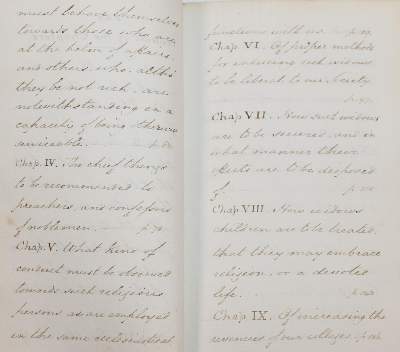 must behave themselves
towards those who are
at the helm of affairs
and others, who, altho'
they be not rich, are
notwithstanding in a
capacity of being otherwise
serviceable.
Chap. IV. The chief things
to be recommended to
preachers, and confessors
of noblemen. p.
Chap. V. What kind of
conduct must be observed
towards such religious
persons as are employed
in the same ecclesiastical
functions with us. p.
Chap VI. Of proper methods
for inducing rich widows
to be liberal to our Society
p.
Chap VII. How such widows
are to be secured, and in
what manner their
effects are to be disposed
of
Chap VIII. How widows
children are to be treated,
that they may embrace
religion, or a devoted
life. p.
Chap IX. Of increasing the
revenues of our colleges. p.